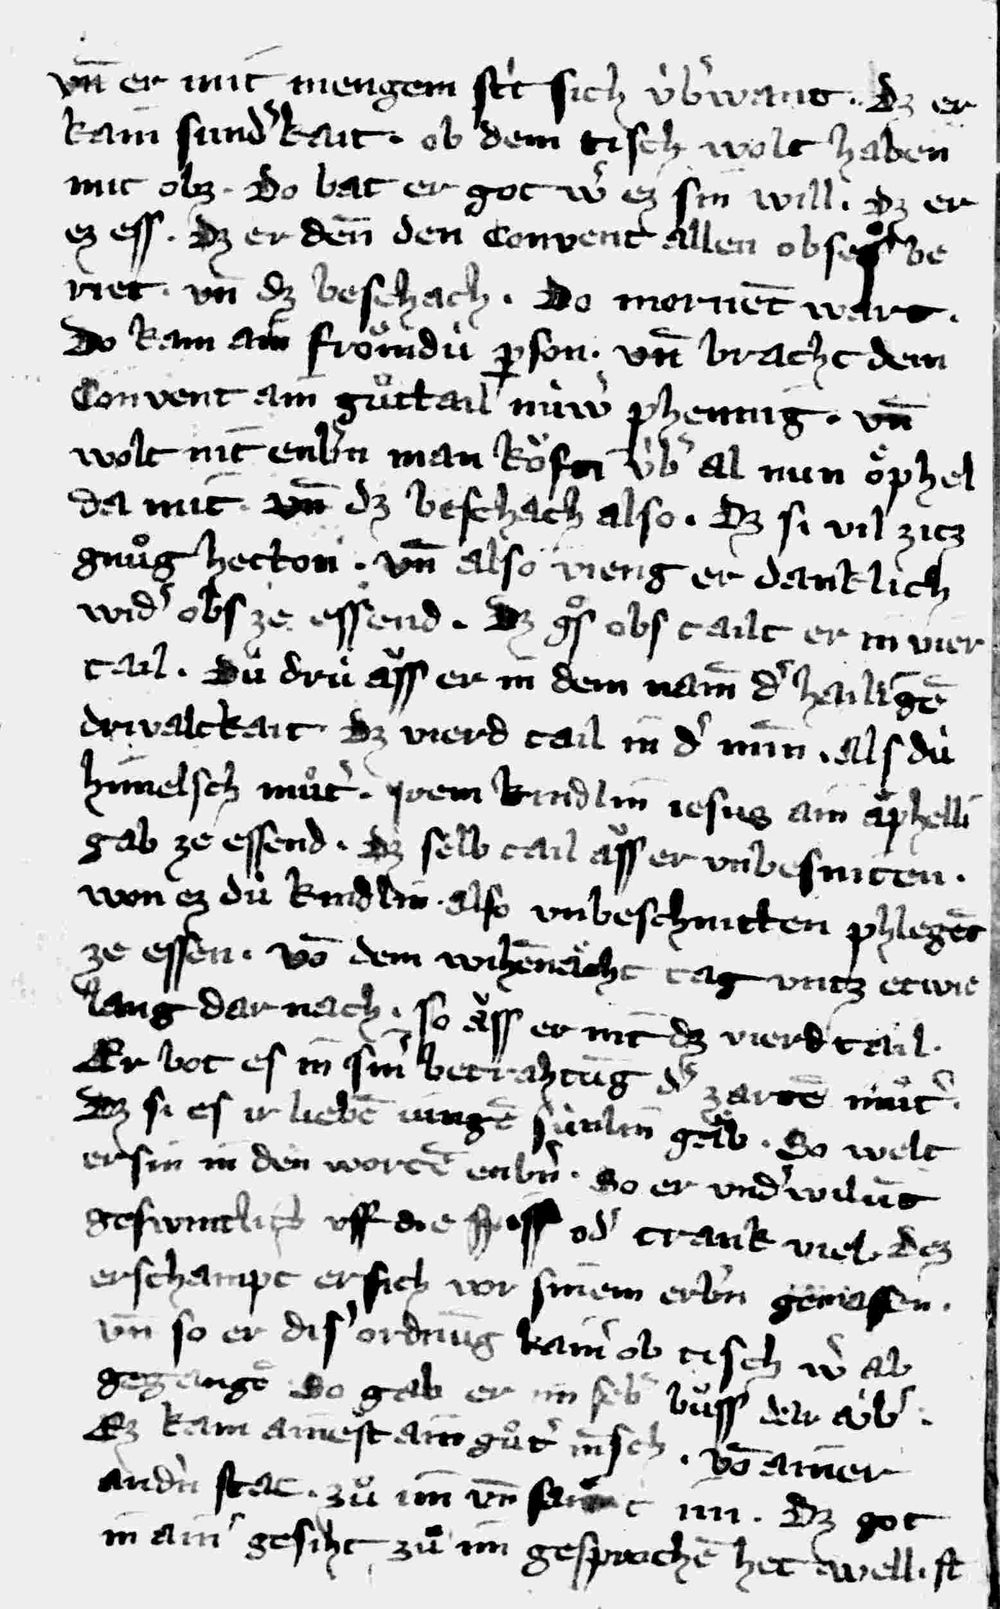 vn̄ er mit mengem strit sich v́bʼwant. Dz er
kain sundʼkait. ob dem tisch wolt haben
mit obz. Do bat er got wʼ ez sin will. dz er
ez ess. Dz er den̄ den Convent allen obses be
riet. vn̄ dz beschach. Do mornent wart.
Do kam ain frömdú pson. vn̄ bracht dem
Convent ain gůttail núwʼ phennig. vn̄
wolt nit enbʼn man köfti v́bʼ al nun öphel
da mit. vn̄ dz beschach also. Dz si vil zitz
gnůg hetton. vn̄ also vieng er danklich
widʼ obs ze essend. Dz gͦs obs tailt er in vier
tail. Dú drú äss er in dem nam̄ dʼ hailigē
drivaltkait. Dz vierd tail in dʼ min̄. als dú
himelsch můtʼ. irem kindlin iesus ain äphelli
gab ze essend. Dz selb tail äss er vnbesniten.
won ez dú kindlin. also vnbeschnitten phlegēt
ze essen. vō dem wihēnäht tag vntz etwie
lang dar nach. so äss er nit dz vierd tail.
Er bot es in sinʼ betrahtūg dʼ zartē můtʼ.
Dz si es ir liebē iungē súnlin gäb. So welt
er sin in den wortē enbʼn. So er vndʼwilūt
geswintlich vff die spiss odʼ trank viel. dez
erschampt er sich vor sinem erbʼn
vn̄ so er disʼ ordnūg kainʼ ob tisch wʼ ab
gegangē Do gab er im selbʼ bůss der v́bʼ.
Ez kam ainest ain gůtʼ mēsch. vō ainer
andʼn stat. zů im vn̄ im. Dz got
in ainʼ gesiht zů im gesprochē het well. st